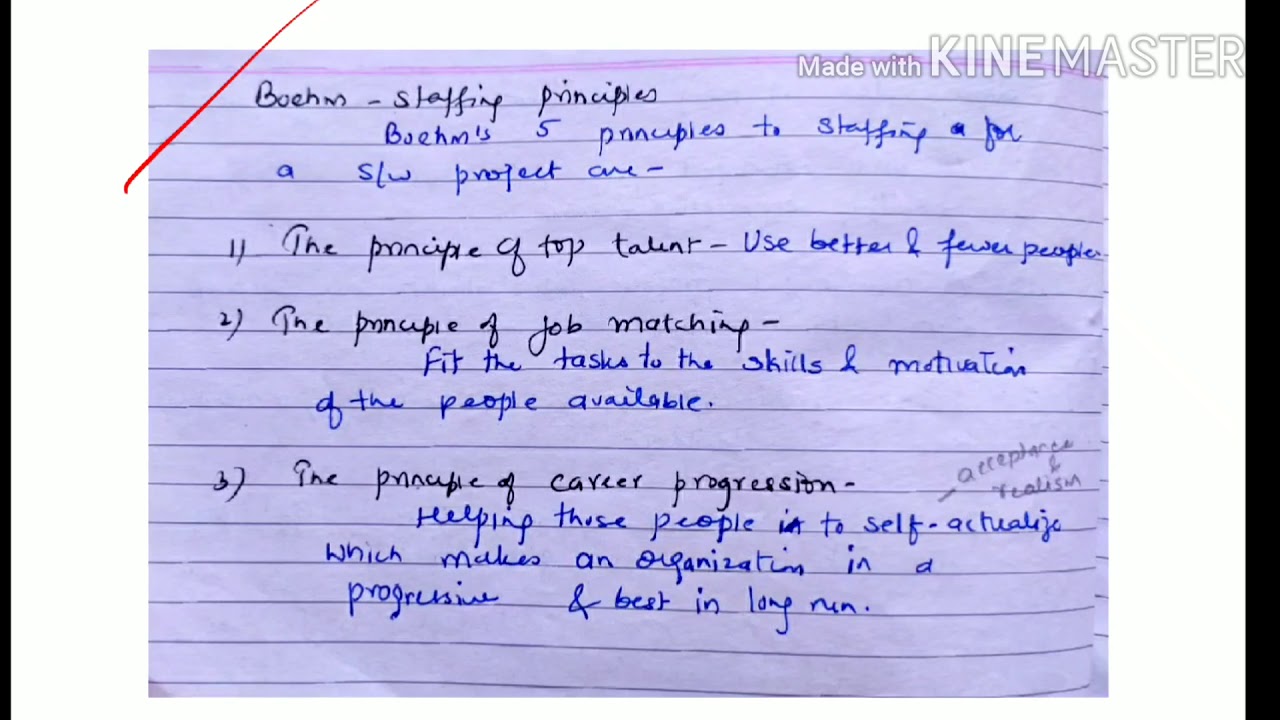 Made with KINEMASTER
Boehm - staffing principles
Boehm's 5 principles to staffing a for
a s/w project are -
1) The principle of top talent - Use better & fewer people.
2) The principle of job matching -
Fit the tasks to the skills & motivation
of the people available.
3) The principle of career progression -
acceptance
&
realism
Helping those people in to self-actualize
which makes an organization in a
progressive & best in long run.